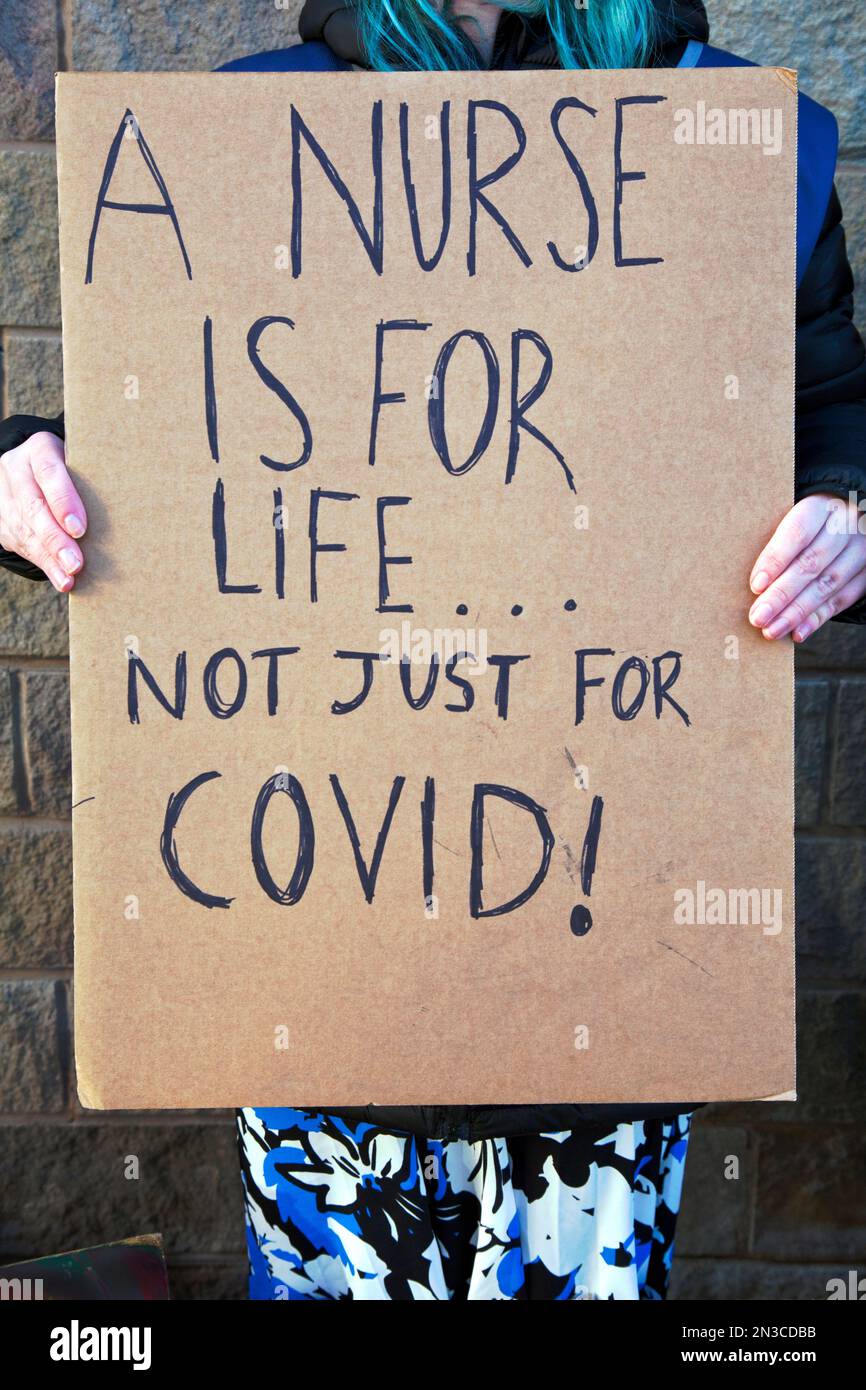 A NURSE
IS FOR
LIFE...
NOT JUST FOR
COVID!
alamy
alamy
alamy
Image ID: 2N3CDBB
www.alamy.com